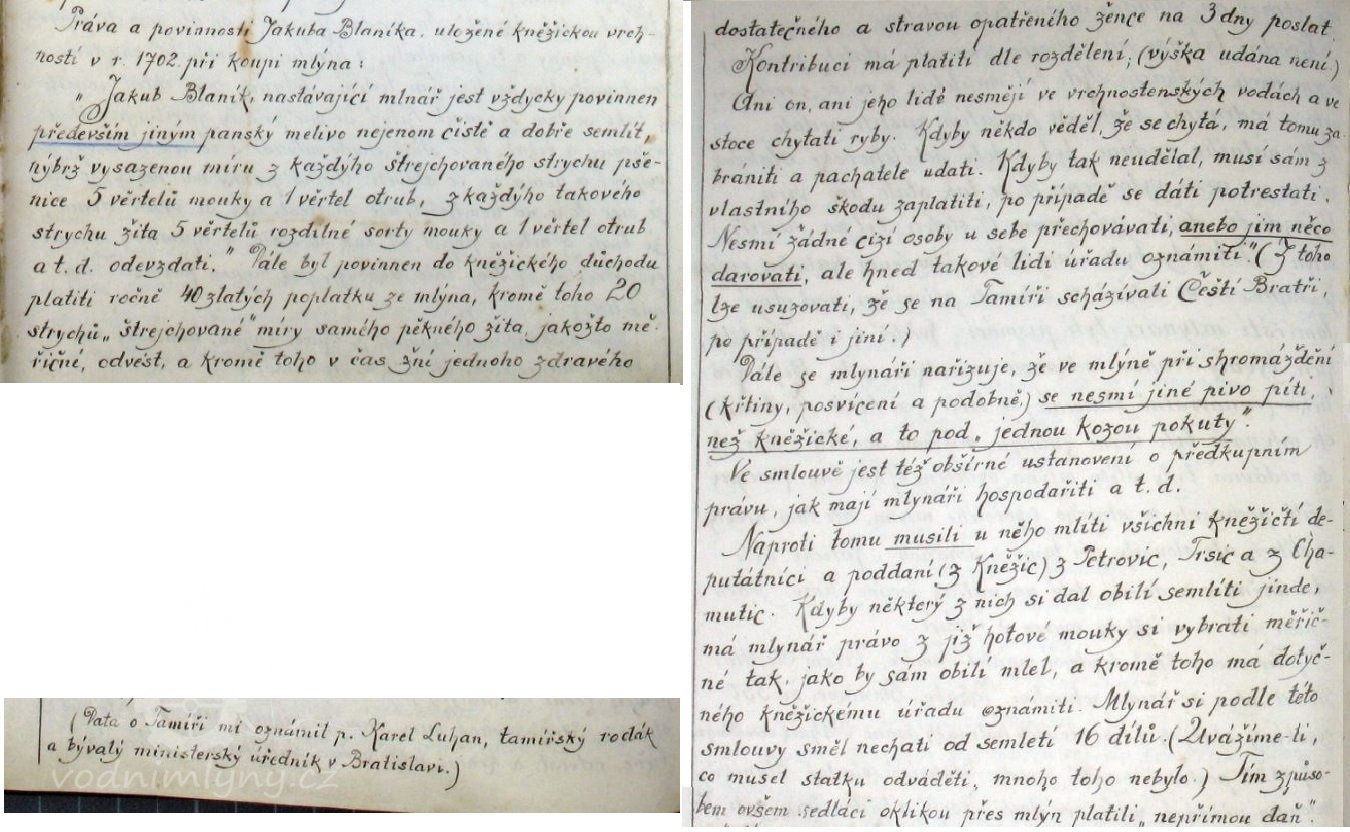 Práva a povinnosti Jakuba Blaníka, uložené kněžickou vrch-
ností v r. 1702 při koupi mlýna:
„Jakub Blaník, nastávající mlnář jest vždycky povinnen
především jiným panský melivo nejenom čistě a dobře semlít,
nýbrž vysazenou míru z každýho štrejchovaného strychu pše-
nice 5 věrtelů mouky a 1 věrtel otrub, z každýho takového
strychu žita 5 věrtelů rozdílné sorty mouky a 1 věrtel otrub
a t. d. odevzdati." Dále byl povinnen do kněžického důchodu
platiti ročně 40 zlatých poplatku ze mlýna, kromě toho 20
strychů „štrejchované" míry samého pěkného žita, jakožto mě-
řičné, odvést, a kromě toho v čas žní jednoho zdravého
dostatečného a stravou opatřeného žence na 3 dny poslat.
Kontribuci má platiti dle rozdělení, (výška udána není.)
Ani on, ani jeho lidé nesmějí ve vrchnostenských vodách a ve
stoce chytati ryby. Kdyby někdo věděl, že se chytá, má tomu za-
brániti a pachatele udati. Kdyby tak neudělal, musí sám z
vlastního škodu zaplatiti, po případě se dáti potrestati.
Nesmí žádné cizí osoby u sebe přechovávati, anebo jim něco
darovati, ale hned takové lidi úřadu oznámiti." (Z toho
lze usuzovati, že se na Tamíři scházívali Čeští Bratři,
po případě i jiní.)
Dále se mlynáři nařizuje, že ve mlýně při shromáždění
(křtiny, posvícení a podobně,) se nesmí jiné pivo píti,
než kněžické, a to pod „jednou kozou pokuty".
Ve smlouvě jest též obšírné ustanovení o předkupním
právu, jak mají mlynáři hospodařiti a t. d.
Naproti tomu musili u něho mlíti všichni kněžičtí de-
putátníci a poddaní (z Kněžic) z Petrovic, Trsic a z Cha-
mutic. Kdyby některý z nich si dal obilí semlíti jinde,
má mlynář právo z již hotové mouky si vybrati měřič-
né tak, jako by sám obilí mlel, a kromě toho má dotyč-
ného kněžickému úřadu oznámiti. Mlynář si podle této
smlouvy směl nechati od semletí 16 dílů. (Uvážíme-li,
co musel statku odváděti, mnoho toho nebylo.) Tím způso-
bem ovšem sedláci oklikou přes mlýn platili „nepřímou daň".
(Data o Tamíři mi oznámil p. Karel Luhan, tamířský rodák
a bývalý ministerský úředník v Bratislavi.)
vodnimlyny.cz